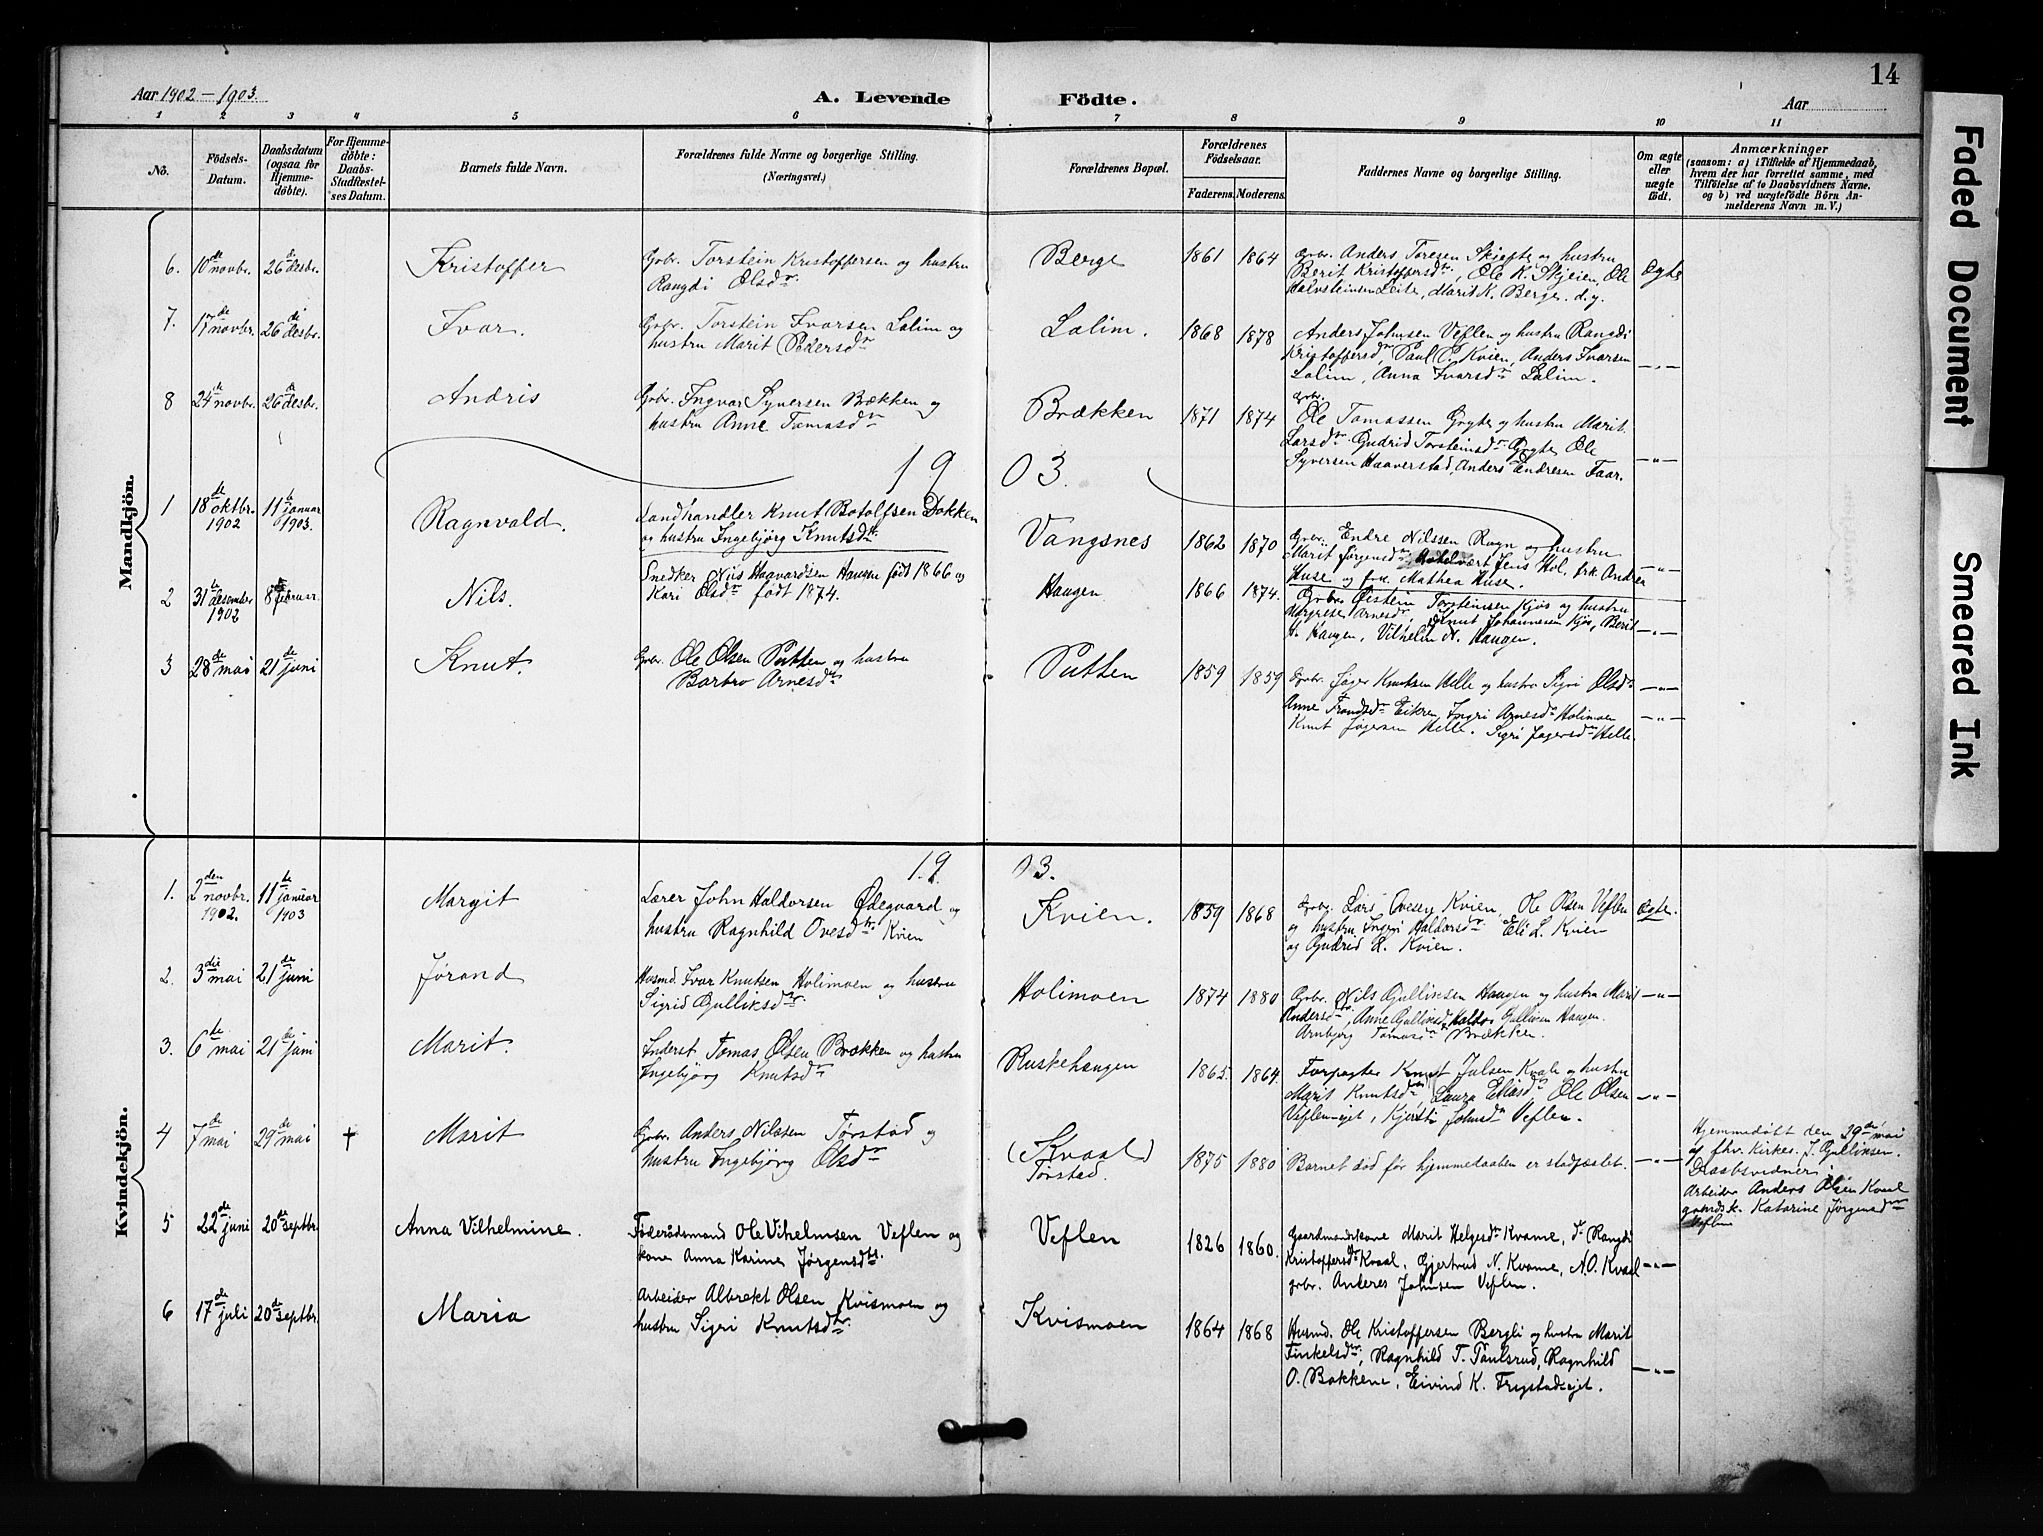 14
Aar 1902 – 1903.
A. Levende Födte.
Aar
1 2 3 4 5 6 7 8 9 10 11
No.
Födsels-Datum.
Daabsdatum (ogsaa for Hjemme-döbte).
For Hjemme-döbte: Daabs-Stadfæstel-ses Datum.
Barnets fulde Navn.
Forældrenes fulde Navne og borgerlige Stilling.
(Næringsvei.)
Forældrenes Bopæl.
Forældrenes Födselsaar.
Faderens. Moderens.
Faddernes Navne og borgerlige Stilling.
Om ægte eller uægte födt.
Anmærkninger
(saasom: a) i Tilfælde af Hjemmedaab,
hvem der har forrettet samme, med
Tilföielse af to Daabsvidners Navne.
og b) ved uægtefödte Börn An-
melderens Navn m. V.)
Mandkjön.
6. 10de novbr. 26de desbr. Kristoffer
Gbr. Torstein Kristoffersen og hustru
Rangdi Olsdtr
Berge 1861 1864
Gbr. Anders Toresen Skjefte og hustru
Berit Kristoffersdtr, Ole K. Skjeien, Ole
Halvsteinsen Leite, Marit K. Berge. d.y.
Ægte
7. 17de novbr. 26de desbr. Ivar.
Gbr. Torstein Ivarsen Lalim og
hustru Marit Pedersdtr
Lalim. 1868 1878
Anders Johnsen Veflen og hustru Rangdi
Kristoffersdtr, Paul P. Kvien, Anders Ivarsen
Lalim, Anna Ivarsdtr Lalim.
—„—
8 24de novbr. 26de desbr. Andris
Gbr. Ingvar Syversen Brækken og
hustru Anne Tomasdtr
Brækken 1871 1874
Gbr.
Ole Tomassen Grythe og hustru Marit
Larsdtr Gudrid Torsteinsdtr Grythe Ole
Syversen Haaverstad, Anders Endresen Faar.
—„—
1903.
1 18de oktbr. 1902 11te januar 1903. Ragnvald.
Landhandler Knut Botolfsen Dokken
og hustru Ingebjørg Knutsdtr.
Vangsnes 1862 1870
Gbr. Endre Nilssen Rogn og hustru
Marit Jørgensdtr Jens Hol, frk. Andrea
Huse og frk. Mathea Huse.
—„—
2 31te desember 1902 8de februar Nils.
Snedker Nils Haavardsen Haugen født 1866 og
Kari Olsdtr født 1874.
Haugen 1866 1874.
Gbr. Øistein Torsteinsen Kjøs og hustru
Margrete Arnesdtr, Knut Johannesen Kjøs, Berit
H. Haugen, Vilhelm N. Haugen.
—„—
3 28de mai 21de juni Knut.
Gbr. Ole Olsen Putten og hustru
Barbro Arnesdtr
Putten 1859 1859
Gbr. Jøger Knutsen Helle og hustru Sigri Olsdtr —„—
Anne Trondsdtr Eikren Ingri Arnesdtr Holimoen —„—
Knut Jøgersen Helle. Sigri Jøgersdtr Helle.
Kvindekjön.
1903.
1. 2den novbr. 1902. 11te januar 1903 Margit
Lærer John Haldorsen Ødegaard og
hustru Ragnhild Ovesdtr. Kvien
Kvien. 1859 1868
Gbr. Lars Ovesen Kvien, Ole Olsen Veflen
og hustru Ingri Haldorsdtr Eli L. Kvien
og Gudrid L. Kvien.
Ægte.
2. 3die mai 21de juni Jørand
Husmd. Ivar Knutsen Holimoen og hustru
Sigrid Gulliksdtr
Holimoen 1874 1880
Gbr. Nils Gulliksen Haugen og hustru Marit —„—
Andersdtr, Anne Gulliksdtr, Gulliksen Haugen.
Arnbjørg Tomasdtr Brækken.
3. 6te mai 21de juni Marit.
Inderst Tomas Olsen Brækken og hustru
Ingebjørg Knutsdtr
Ruskehaugen 1865. 1864.
Forpagter Knut Julsen Kvale og hustru
Marit Knutsdtr Laura Eliasdtr Ole Olsen
Veflen-eiet, Kjersti Johnsdtr Veflen.
—„—
4 7de mai 29de mai † Marit
Gbr. Anders Nilssen Tørstad og
hustru Ingebjørg Olsdtr
(Kvaal)
Tørstad. 1875 1880
Barnet død før hjemmedaaben er stadfæstet. —„—
Hjemmedøbt den 29de mai
af fhv. Kirkes. J. Gulliksen.
Daabsvidner:
Arbeider Anders Olsen Kvaal
gaardsk. Katarine Jørgensdtr
Veflen
5 22de juni 20de septbr. Anna Vilhelmine.
Føderådsmand Ole Vilhelmsen Veflen og
kone Anna Karine Jørgensdtr.
Veflen 1826 1860.
Gaardmandskone Marit Helgesdtr Kvame, Do Rangdi
Kristoffersdtr Kvaal, Gjertrud N. Kvame, N. O. Kvaal
gbr. Anders Johnsen Veflen.
—„—
6 17de juli 20de septbr. Maria
Arbeider Albrekt Olsen Kvismoen og
hustru Sigri Knutsdtr.
Kvismoen 1864 1868
Husmd. Ole Kristoffersen Bergli og hustru Marit
Finkelsdtr, Ragnhild T. Paulsrud, Ragnhild
O. Bakkene, Eivind K. Trystadeiet.
—„—
Faded Document
Smeared Ink